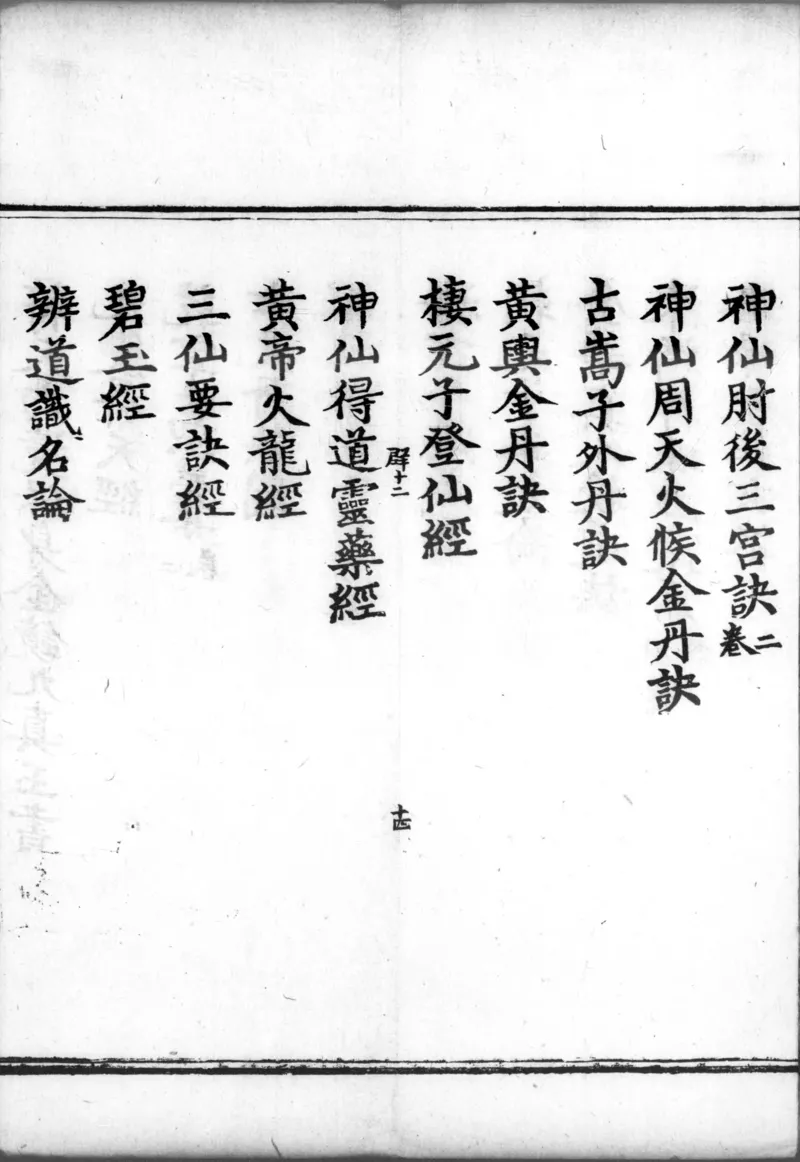 神仙肘後三宫訣二卷
神仙周天火候金丹訣
古嵩子外丹訣
黃輿金丹訣
棲元子登仙經
辟十二
十四
神仙得道靈藥經
黃帝火龍經
三仙要訣經
碧玉經
辨道識名論